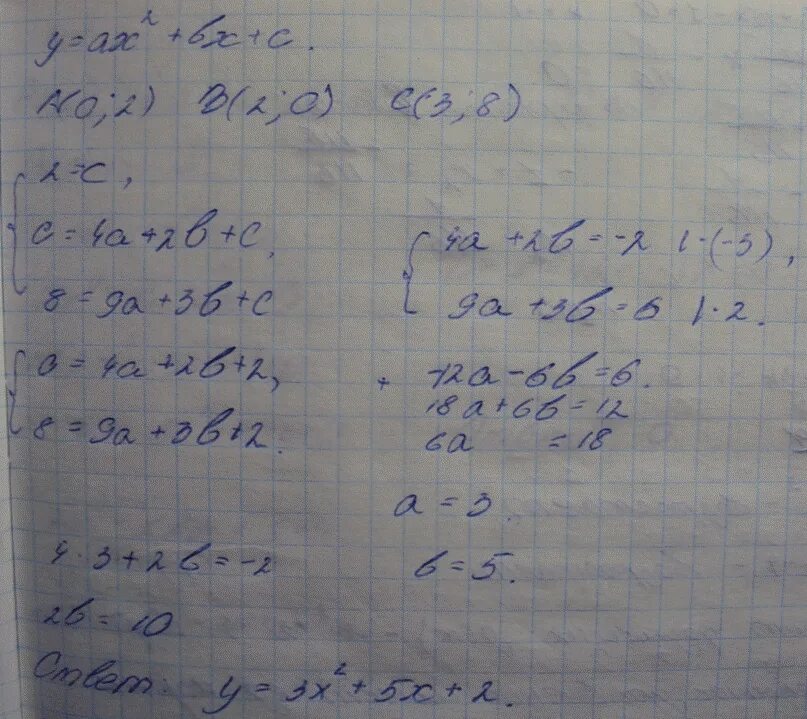 y = ax² + bx + c.
A(0; 2) B(2; 0) C(3; 8)
2 = c,
0 = 4a + 2b + c,
8 = 9a + 3b + c
4a + 2b = -2 | · (-3),
9a + 3b = 6 | · 2.
0 = 4a + 2b + 2,
8 = 9a + 3b + 2.
+ -12a - 6b = 6.
18a + 6b = 12
6a = 18
a = 3.
4 · 3 + 2b = -2
b = 5.
2b = 10
Ответ: y = 3x² + 5x + 2.